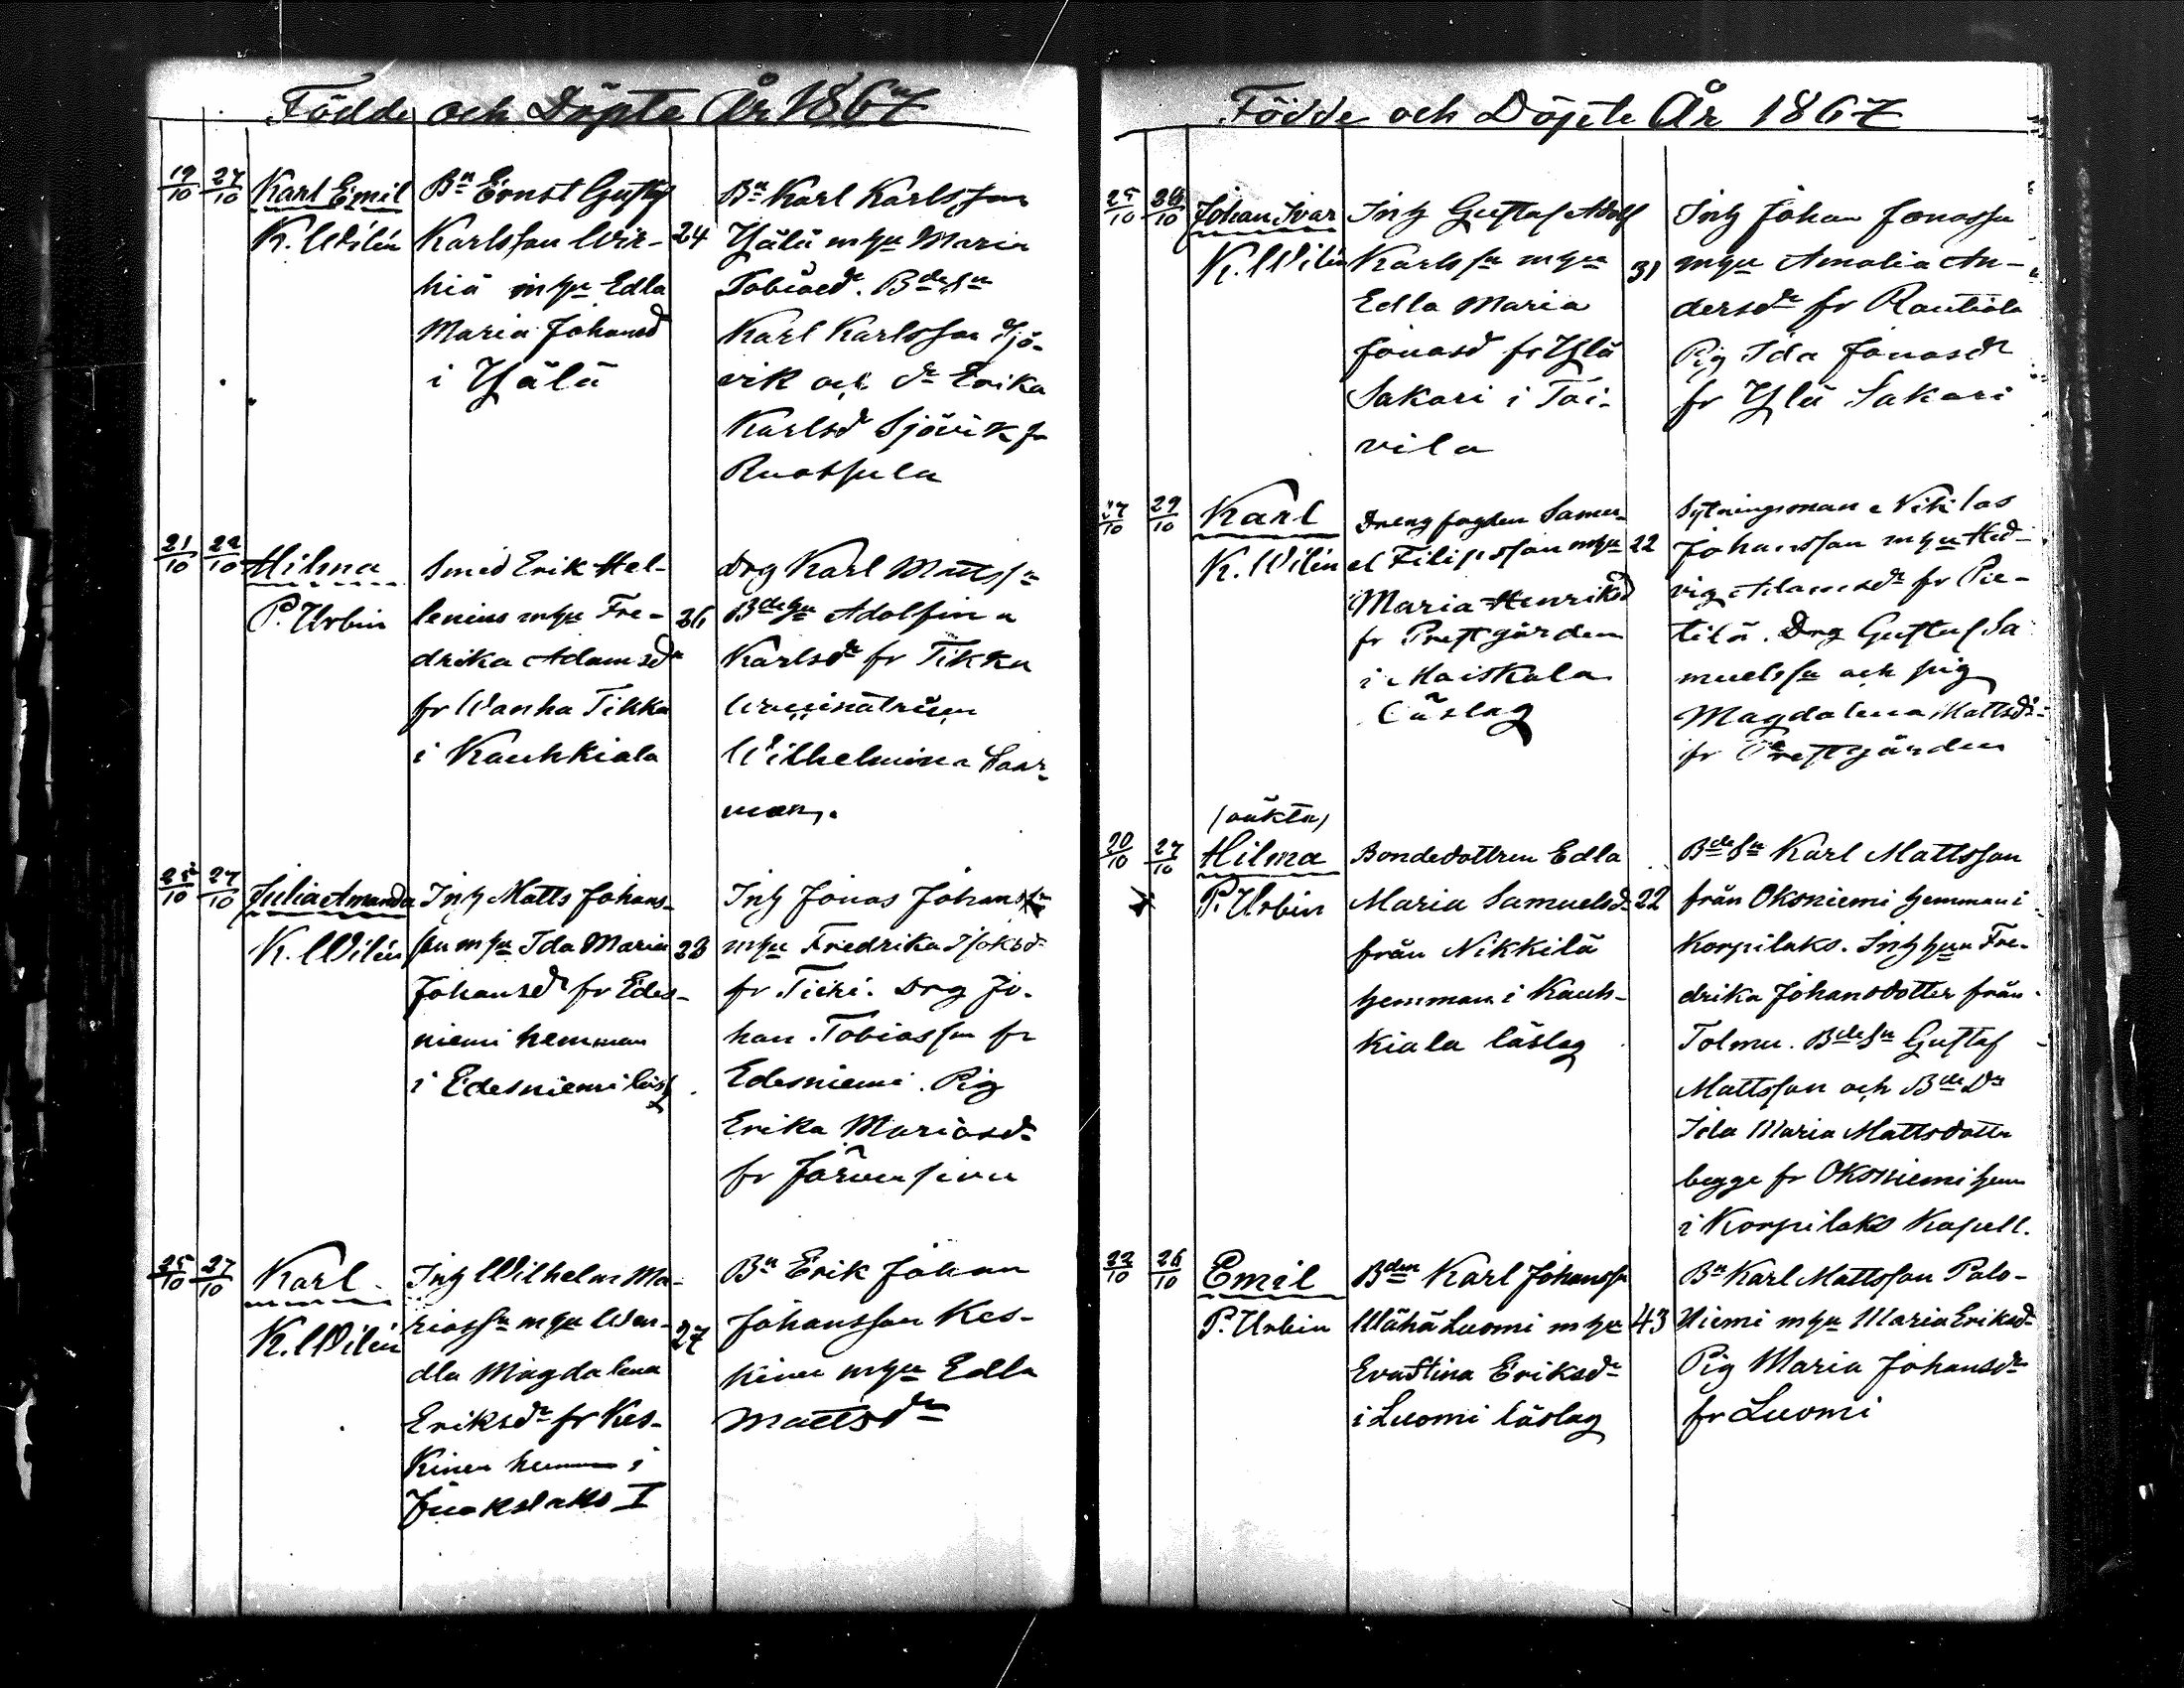 Födde och Döpte År 1867
19/10 27/10 Karl Emil
K. Wilén
Bn Ernst Gustaf
Karlsson Wir-
hiä m hu Edla
Maria Johansd
i Yjälä
24
Bn Karl Karlsson
Yjälä m hu Maria
Tobiaed. Bde Sn
Karl Karlsson Sjö-
vik och dr Erika
Karlsd Sjövik fr
Ruossula
21/10 22/10 Hilma
P. Urbin
Smed Erik Hel-
lenius m hu Fre-
drika Adamsdr
fr Wanha Tikka
i Kauhkiala
26
Drg Karl Mattssn
Bde hu Adolfina
Karlsdr fr Tikka
Wilhelmina Saar-
man.
25/10 27/10 Julia Amanda
K. Wilén
Inh Matts Johans-
son m hu Ida Maria
Johansdr fr Edes-
niemi hemman
i Edesniemi läsl
23
Inh Jonas Johanssn
m hu Fredrika Isaksdr
fr Tiiri. Drg Jo-
han Tobiasson fr
Edesniemi. Pig
Erika Mariasdr
fr Järvensivu
25/10 27/10 Karl
K. Wilén
Inh Wilhelm Ma-
riassn m hu Wen-
dla Magdalena
Eriksdr fr Kes-
kinen hemman i
Juokslaks I
27
Bn Erik Johan
Johansson Kes-
kinen m hu Edla
Mattsdr
Födde och Döpte År 1867
25/10 26/10 Johan Ivar
K. Wilén
Inh Gustaf Adolf
Karlssn m hu
Edla Maria
Jonasd fr Yli
Sakari i Toi-
vila
31
Inh Johan Jonassn
m hu Amalia An-
dersdr fr Rautiola
Pig Ida Jonasdr
fr Yli Sakari
27/10 29/10 Karl
K. Wilén
Drengfogden Samu-
el Filipsson m hu
Maria Henriksd
fr Prestgården
i Maiskala
läslag
22
Sytningsmanne Niklas
Johansson m hu Hed-
vig Adamsdr fr Pie-
tilä. Drg Gustaf Sa
muelssn och pig
Magdalena Mattsdr
fr Prestgården
(oäkta)
20/10 27/10 Hilma
P. Urbin
Bondedottren Edla
Maria Samuelsdr
från Nikkilä
hemman i Kauh-
kiala läslag
22
Bde Sn Karl Mattsson
från Oksniemi hemman i
Korpilaks. Inh hun Fre-
drika Johansdotter från
Tolmu. Bde Sn Gustaf
Mattsson och Bde Dr
Ida Maria Mattsdotter
begge fr Oksniemi hem
i Korpilaks Kapell.
22/10 26/10 Emil
P. Urbin
Bden Karl Johanssn
Wähä Luomi m hu
Eva Stina Eriksdr
i Luomi läslag
43
Bn Karl Mattsson Palo-
niemi m hu Maria Eriksdr
Pig Maria Johansdr
fr Luomi